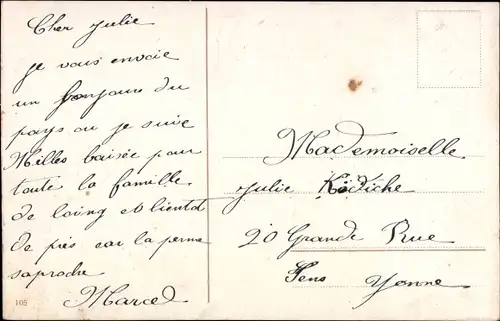 Cher Julie
je vous envoie
un bonjour du
pays ou je suie
Milles baisée pour
toute la famille
de loing et bientot
de près car la perme
saproche
Marcel
105
Mademoiselle
Julie
20 Grande Rue
Sens Yonne